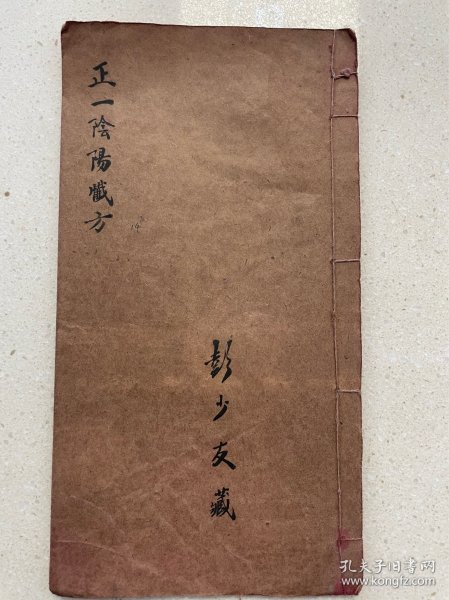 正一陰陽懺方
彭少友藏
孔夫子旧书网
www.kongfz.com